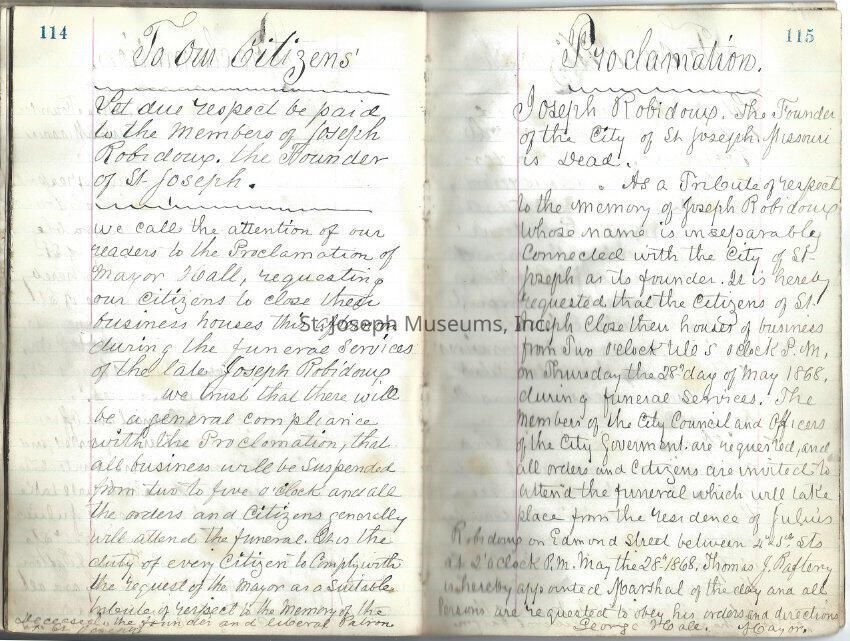 114
To Our Citizens'
Let due respect be paid
to the Members of Joseph
Robidoux. the Founder
of St. Joseph.
we call the attention of our
readers to the Proclamation of
Mayor Hall, requesting
our citizens to close their
business houses this afternoon
during the funeral services
of the late Joseph Robidoux
we trust that there will
be a general compliance
with the Proclamation, that
all business will be Suspended
from two to five o'clock and all
the orders and Citizens generally
will attend the funeral. It is the
duty of every Citizen to Comply with
the request of the Mayor as a Suitable
tribute of respect to the Memory of the
deceased the founder and liberal Patron
of St. Joseph
115
Proclamation.
Joseph Robidoux. The Founder
of the City of St Joseph Missouri
is Dead.
As a Tribute of respect
to the memory of Joseph Robidoux
whose name is inseparably
Connected with the City of St-
Joseph as its founder. It is hereby
requested that the Citizens of St.
Joseph Close their houses of business
from Two o'clock till 5 o'clock P.M.
on Thursday the 28th day of May 1868.
during funeral Services. The
Members of the City Council and Officers
of the City Goverment are requested, and
all orders and Citizens are invited to
attend the funeral which will take
place from the residence of Julius
Robidoux on Edmond Street between 4th & 5th Sts
at 2 o'clock P.M. May the 28th 1868. Thomas J.
is hereby appointed Marshal of the day and all
Persons are requested to obey his orders and directions
George Hall. Mayor.
St. Joseph Museums, Inc.